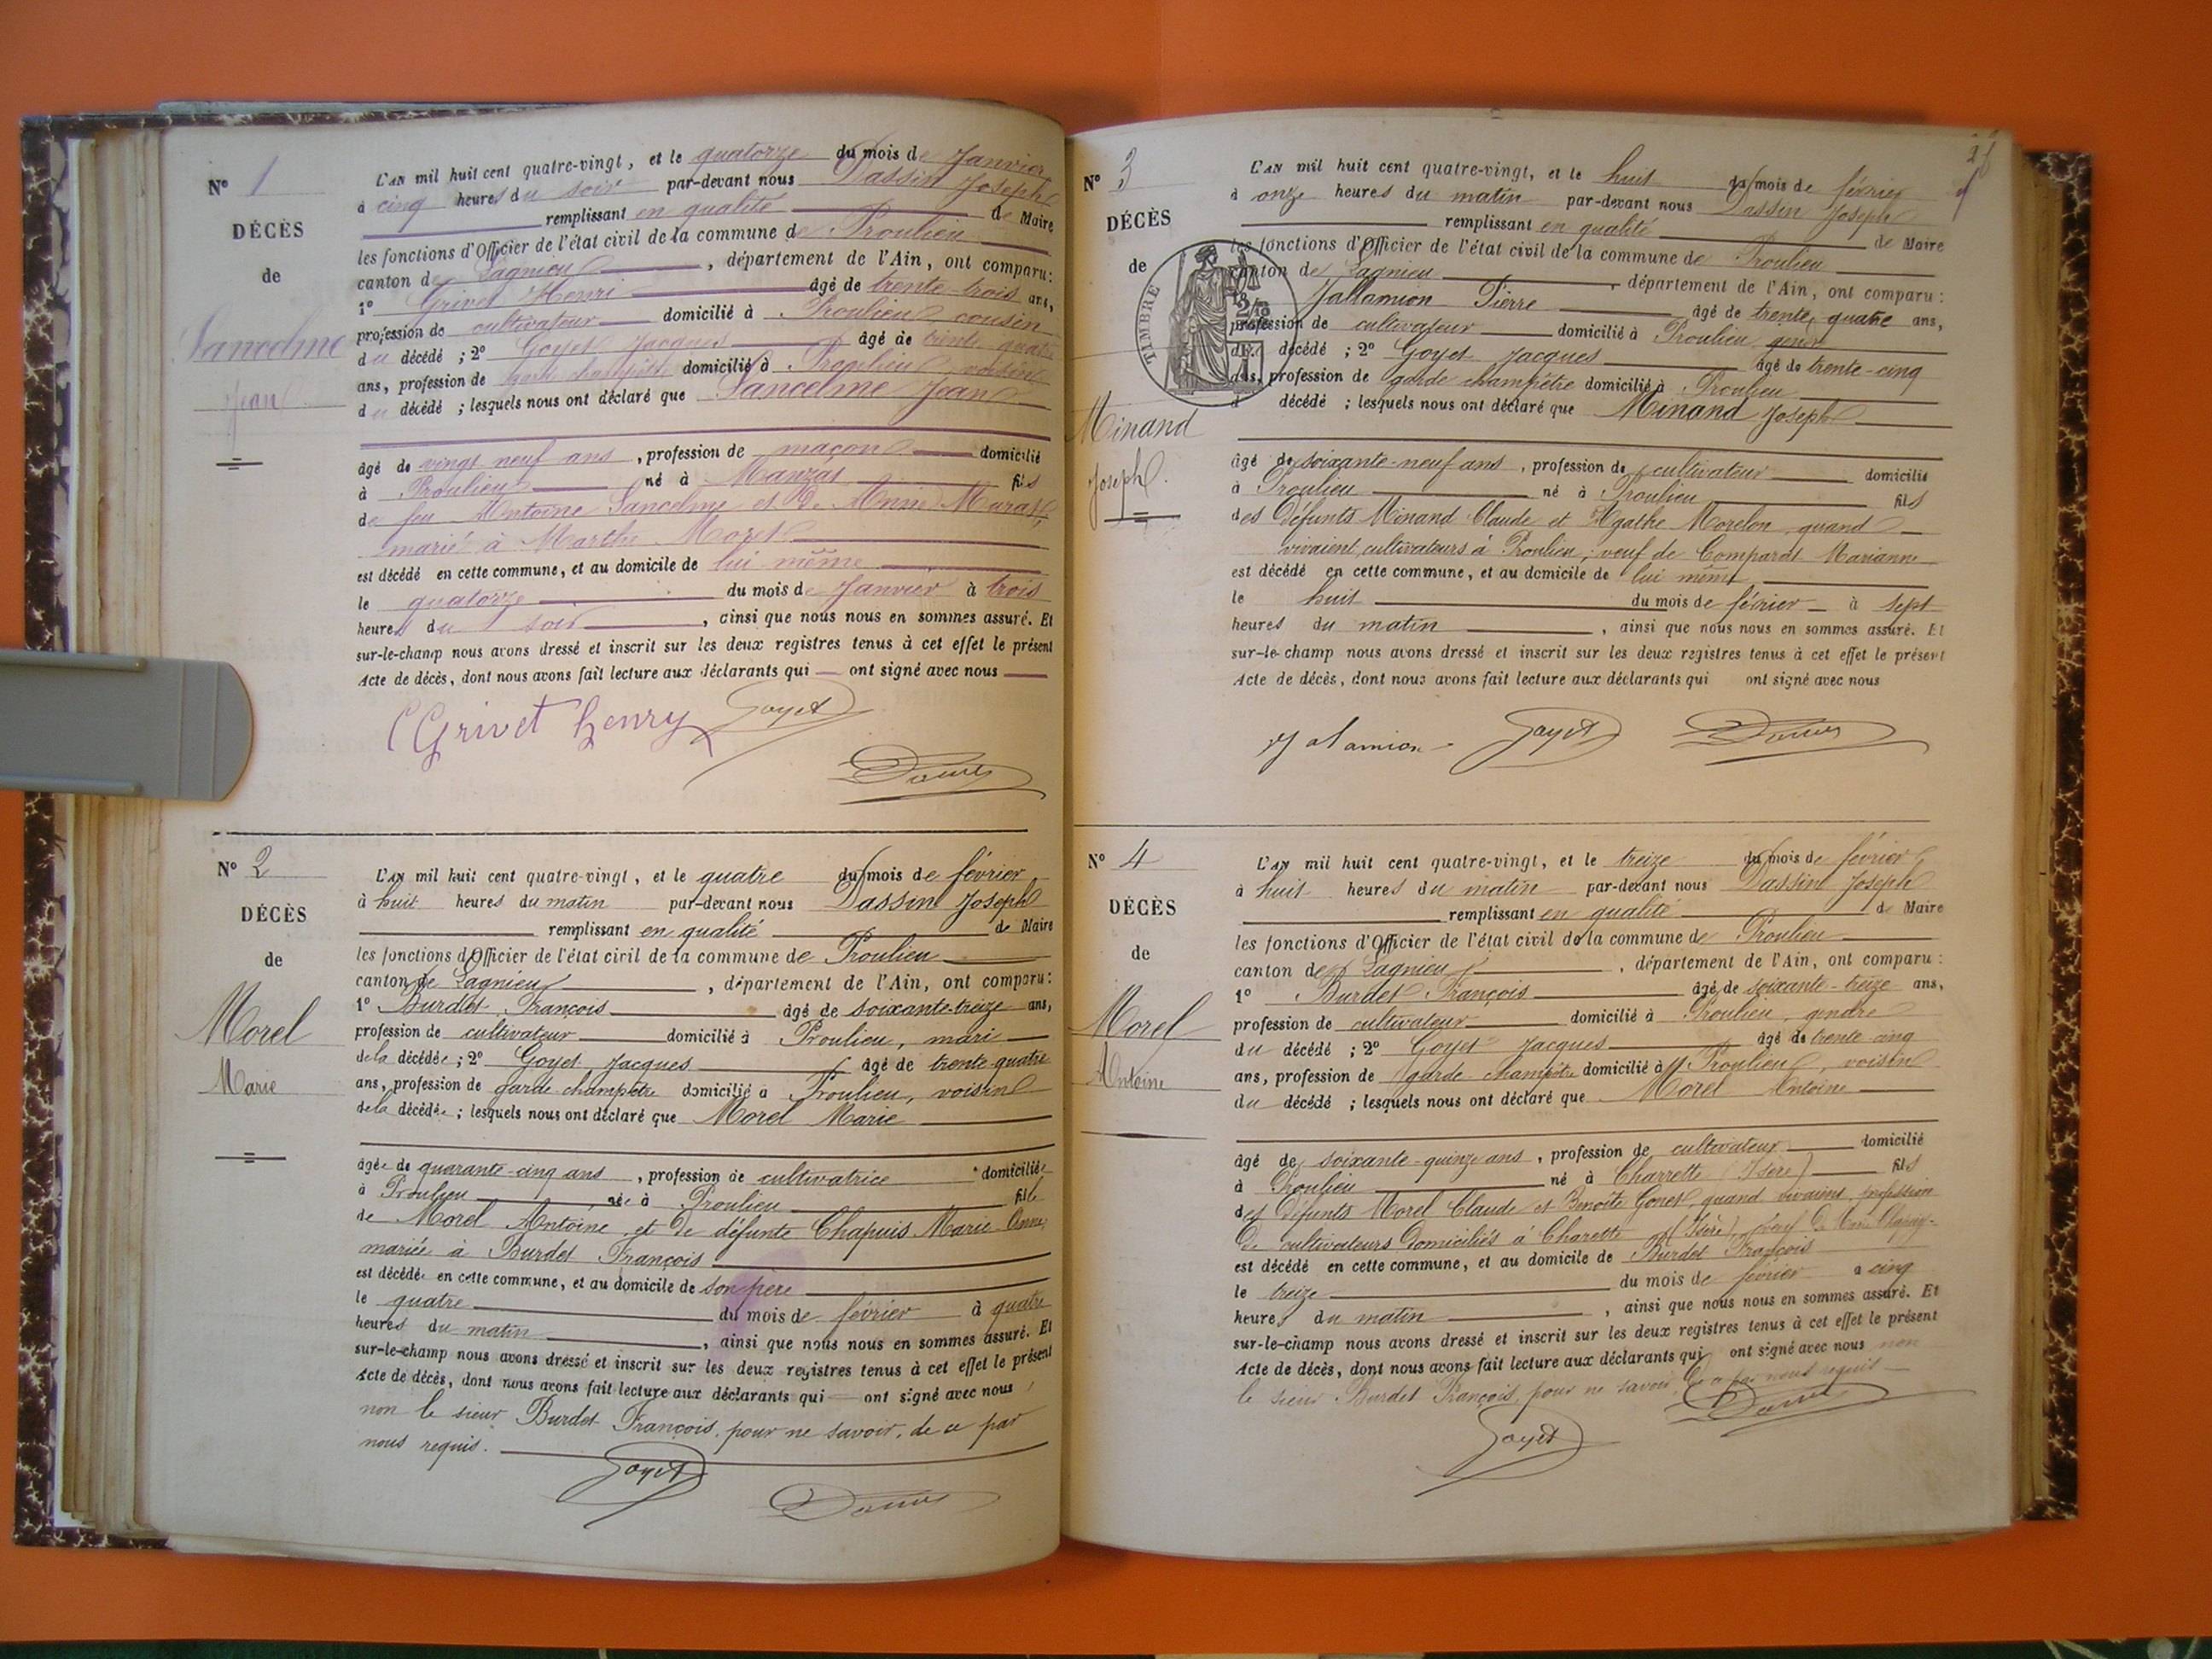 N° 1
DÉCÈS
de
Lancelme
Jean
L'AN mil huit cent quatre-vingt, et le quatorze du mois de Janvier
à cinq heures du soir par-devant nous Dassin Joseph
remplissant en qualité de Maire
les fonctions d'Officier de l'état civil de la commune de Proulieu
canton de Lagnieu, département de l'Ain, ont comparu:
1° Grivet Henri âgé de trente-trois ans,
profession de cultivateur domicilié à Proulieu cousin
du décédé ; 2° Goyet Jacques âgé de trente-quatre
ans, profession de garde champêtre domicilié à Proulieu voisin
du décédé ; lesquels nous ont déclaré que Lancelme Jean
âgé de vingt neuf ans, profession de maçon domicilié
à Proulieu né à Manzat fils
de feu Antoine Lancelme et de Anne Murat,
marié à Marthe Morel
est décédé en cette commune, et au domicile de lui même
le quatorze du mois de Janvier à trois
heures du soir, ainsi que nous nous en sommes assuré. Et
sur-le-champ nous avons dressé et inscrit sur les deux registres tenus à cet effet le présent
Acte de décès, dont nous avons fait lecture aux déclarants qui ont signé avec nous
Grivet henry Goyet
N° 2
DÉCÈS
de
Morel
Marie
L'AN mil huit cent quatre-vingt, et le quatre du mois de février
à huit heures du matin par-devant nous Dassin Joseph
remplissant en qualité de Maire
les fonctions d'Officier de l'état civil de la commune de Proulieu
canton de Lagnieu, département de l'Ain, ont comparu:
1° Burdet François âgé de soixante-treize ans,
profession de cultivateur domicilié à Proulieu, mari
de la décédée ; 2° Goyet Jacques âgé de trente-quatre
ans, profession de garde-champêtre domicilié à Proulieu, voisin
de la décédée ; lesquels nous ont déclaré que Morel Marie
âgée de quarante-cinq ans, profession de cultivatrice domiciliée
à Proulieu née à Proulieu fille
de Morel Antoine et de défunte Chapuis Marie Anne,
mariée à Burdet François
est décédée en cette commune, et au domicile de son père
le quatre du mois de février à quatre
heures du matin, ainsi que nous nous en sommes assuré. Et
sur-le-champ nous avons dressé et inscrit sur les deux registres tenus à cet effet le présent
Acte de décès, dont nous avons fait lecture aux déclarants qui ont signé avec nous
non le sieur Burdet François, pour ne savoir, de ce par
nous requis.
Goyet
N° 3
DÉCÈS
de
TIMBRE
Minand
Joseph.
L'AN mil huit cent quatre-vingt, et le huit du mois de février
à onze heures du matin par-devant nous Dassin Joseph
remplissant en qualité de Maire
les fonctions d'Officier de l'état civil de la commune de Proulieu
canton de Lagnieu, département de l'Ain, ont comparu:
Jallamion Pierre âgé de trente quatre ans,
profession de cultivateur domicilié à Proulieu gendre
décédé ; 2° Goyet Jacques âgé de trente-cinq
ans, profession de garde champêtre domicilié à Proulieu
d décédé ; lesquels nous ont déclaré que Minand Joseph
âgé de soixante-neuf ans, profession de cultivateur domicilié
à Proulieu né à Proulieu fils
des défunts Minand Claude et Agathe Morelon quand
vivaient cultivateurs à Proulieu, veuf de Comparat Marianne
est décédé en cette commune, et au domicile de lui même
le huit du mois de février à sept
heures du matin, ainsi que nous nous en sommes assuré. Et
sur-le-champ nous avons dressé et inscrit sur les deux registres tenus à cet effet le présent
Acte de décès, dont nous avons fait lecture aux déclarants qui ont signé avec nous
Jalamion Goyet
N° 4
DÉCÈS
de
Morel
Antoine
L'AN mil huit cent quatre-vingt, et le treize du mois de février
à huit heures du matin par-devant nous Dassin Joseph
remplissant en qualité de Maire
les fonctions d'Officier de l'état civil de la commune de Proulieu
canton de Lagnieu, département de l'Ain, ont comparu:
1° Burdet François âgé de soixante-treize ans,
profession de cultivateur domicilié à Proulieu, gendre
du décédé ; 2° Goyet Jacques âgé de trente cinq
ans, profession de garde-champêtre domicilié à Proulieu, voisin
du décédé ; lesquels nous ont déclaré que Morel Antoine
âgé de soixante-quinze ans, profession de cultivateur domicilié
à Proulieu né à Charrette (Isère) fils
des défunts Morel Claude et Benoîte Gonet, quand vivaient profession
de cultivateurs domiciliés à Charette (Isère), veuf de
est décédé en cette commune, et au domicile de Burdet François
le treize du mois de février à cinq
heures du matin, ainsi que nous nous en sommes assuré. Et
sur-le-champ nous avons dressé et inscrit sur les deux registres tenus à cet effet le présent
Acte de décès, dont nous avons fait lecture aux déclarants qui ont signé avec nous non
le sieur Burdet François, pour ne savoir, de ce par nous requis
Goyet